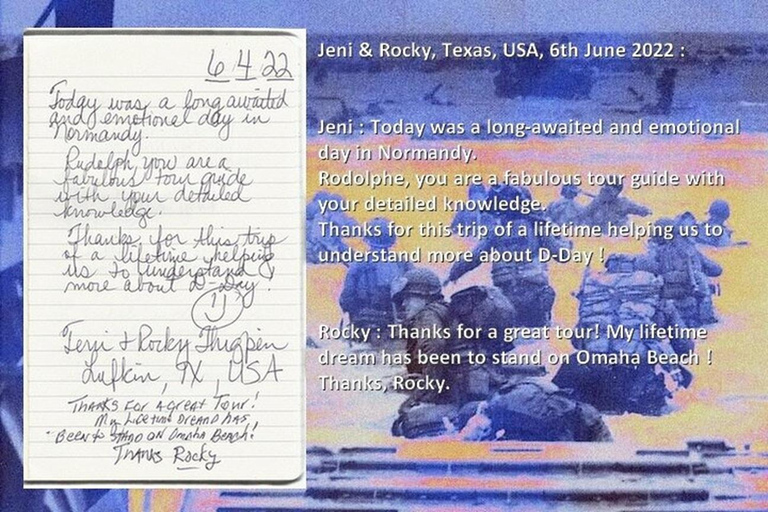 6 4 22
Today was a long awaited
and emotional day in
Normandy.
Rudolph you are a
fabulous tour guide
with your detailed
knowledge.
Thanks for this trip
of a lifetime helping
us to understand
more about D-Day!
Jeni & Rocky Thigpen
Lufkin, TX, USA
Thanks for a great Tour!
My Lifetime dream has
Been to stand on Omaha Beach!
Thanks Rocky
Jeni & Rocky, Texas, USA, 6th June 2022 :
Jeni : Today was a long-awaited and emotional
day in Normandy.
Rodolphe, you are a fabulous tour guide with
your detailed knowledge.
Thanks for this trip of a lifetime helping us to
understand more about D-Day !
Rocky : Thanks for a great tour! My lifetime
dream has been to stand on Omaha Beach !
Thanks, Rocky.